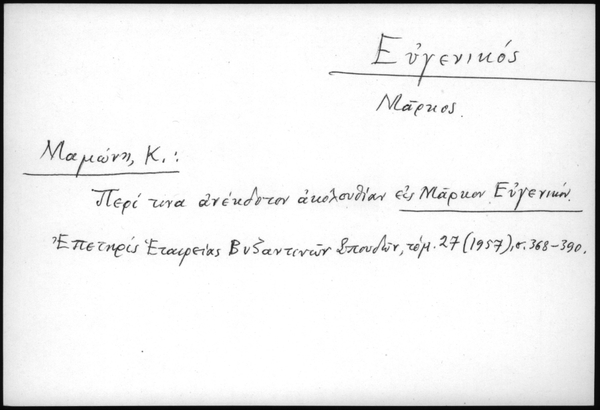 Εὐγενικός
Μᾶρκος.
Μαμώνη, Κ.:
Περί τινα ἀνέκδοτον ἀκολουθίαν εἰς Μᾶρκον Εὐγενικόν.
Ἐπετηρὶς Ἑταιρείας Βυζαντινῶν Σπουδῶν, τόμ. 27 (1957), σ. 368-390.